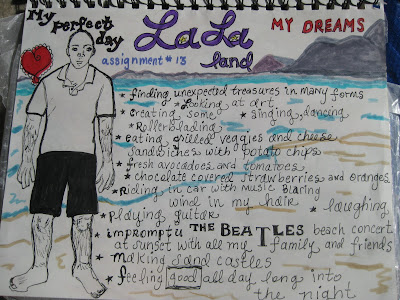 My perfect day
LaLa land
MY DREAMS
assignment # 13
* finding unexpected treasures in many forms
* Looking at art
* creating some * singing, dancing
* Rollerblading
* eating grilled veggies and cheese
sandwiches with potato chips
* fresh avocadoes and tomatoes
* chocolate covered strawberries and oranges
* Riding in car with music blaring
wind in my hair * laughing
* playing guitar
* impromptu THE BEATLES beach concert
at sunset with all my family and friends
* making sand castles
* feeling good all day long into
the night